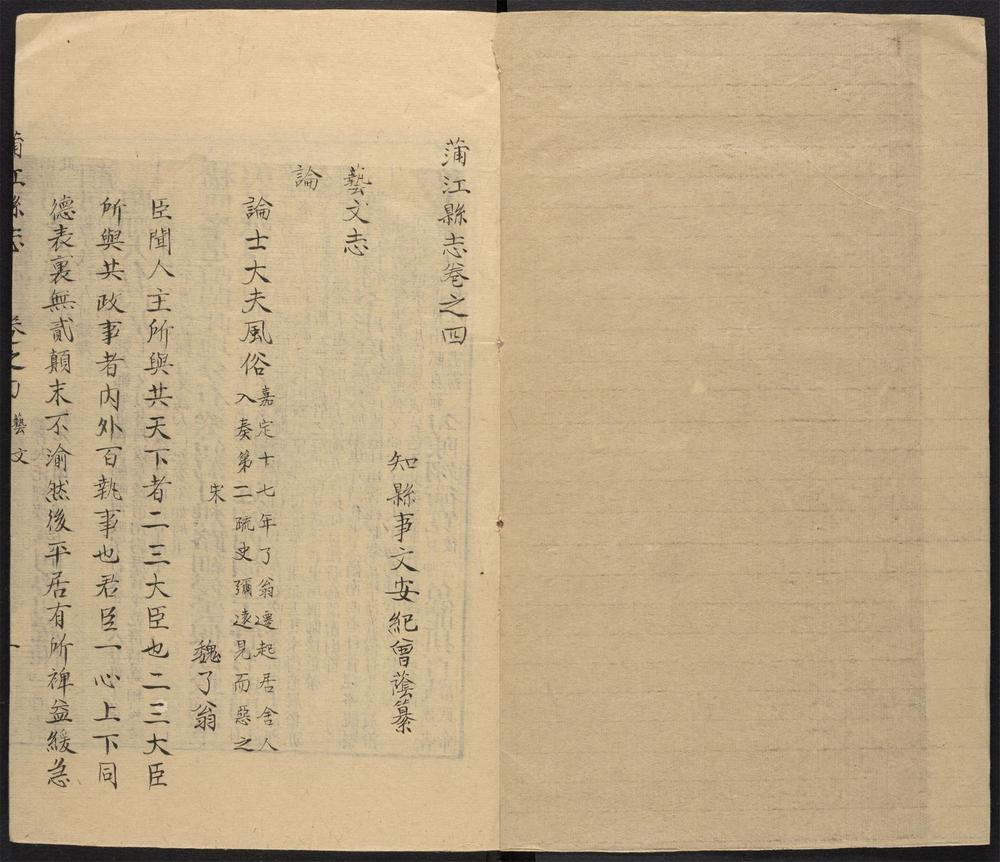 蒲江縣志卷之四
知縣事文安紀曾蔭纂
藝文志
論
論士大夫風俗
嘉定十七年了翁遷起居舍人
入奏第二疏史彌遠見而惡之
宋 魏了翁
臣聞人主所與共天下者二三大臣也二三大臣
所與共政事者內外百執事也君臣一心上下同
德表裏無貳顛末不渝然後平居有所裨益緩急
蒲江縣志 卷之四 藝文 一